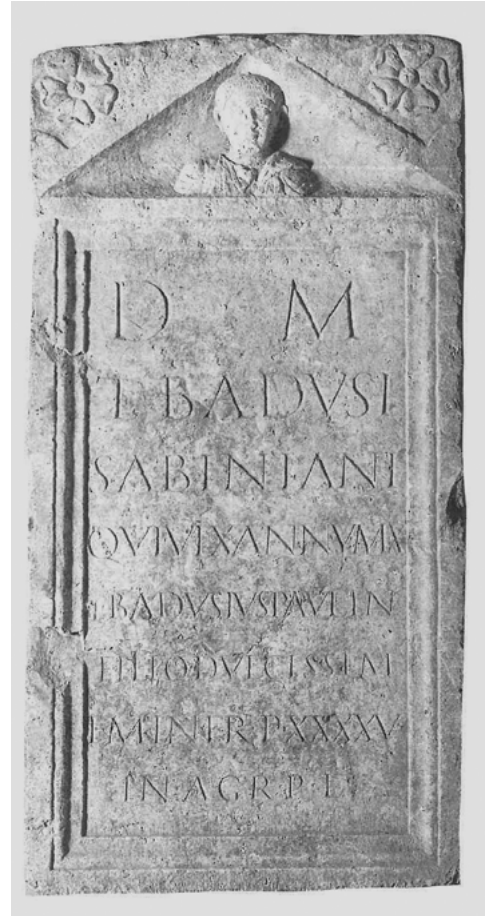 D M
T BADVSI
SABINIANI
QVI VIX ANN V M V
T BADVSIVS PAVLIN
FILIO DVLCISSEM
P XXXXV
IN AGR P L